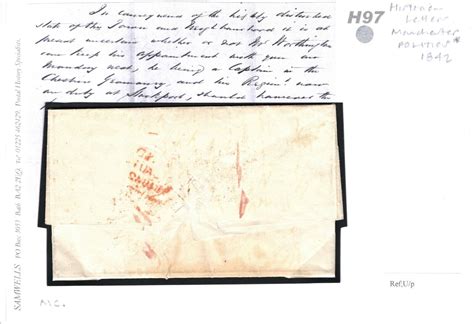 In consequence of the highly disturbed
state of the Town and Neighbourhood it is at
present uncertain whether or not Mr Worthington
can keep his appointment with you on
Monday next, he being a Captain in the
Cheshire Yeomanry, and his Regimt now
on duty at Stockport, should however the
H97
Historian
Letter
Manchester
POLITICS
1842
SAMWELLS PO Box 3037 Bath BA2 Tel 01225 462429 Postal History Specialists.
AU
MC.
Ref:U/p